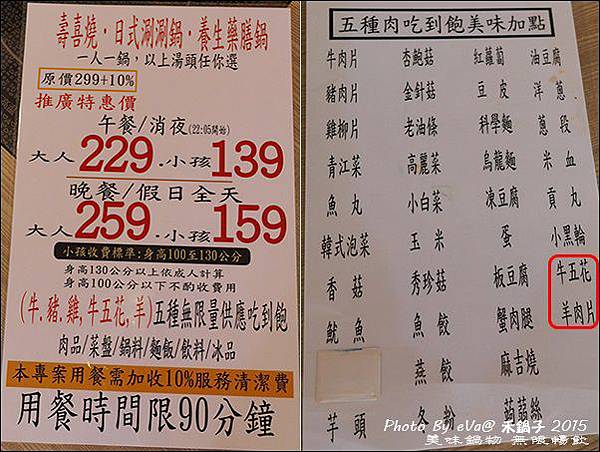 壽喜燒·日式涮涮鍋·養生藥膳鍋
一人一鍋,以上湯頭任你選
原價299+10%
推廣特惠價
午餐/消夜(22:05開始)
大人229.小孩139
晚餐/假日全天
大人259.小孩159
小孩收費標準:身高100至130公分
身高130公分以上依成人計算
身高100公分以下不酌收費用
(牛.豬.雞,牛五花,羊)五種無限量供應吃到飽
肉品/菜盤/鍋料/麵飯/飲料/冰品
本專案用餐需加收10%服務清潔費
用餐時間限90分鐘
五種肉吃到飽美味加點
牛肉片 杏鮑菇 紅蘿蔔 油豆腐
豬肉片 金針菇 豆皮 洋蔥
雞柳片 老油條 科學麵 蔥段
青江菜 高麗菜 烏龍麵 米血
魚丸 小白菜 凍豆腐 貢丸
韓式泡菜 玉米 蛋 小黑輪
香菇 秀珍菇 板豆腐 牛五花
魷魚 魚餃 蟹肉腿 羊肉片
燕餃 麻吉燒
芋頭 冬粉 蒟蒻絲
Photo By eVa@ 禾鍋子 2015
美味鍋物 無限暢飲